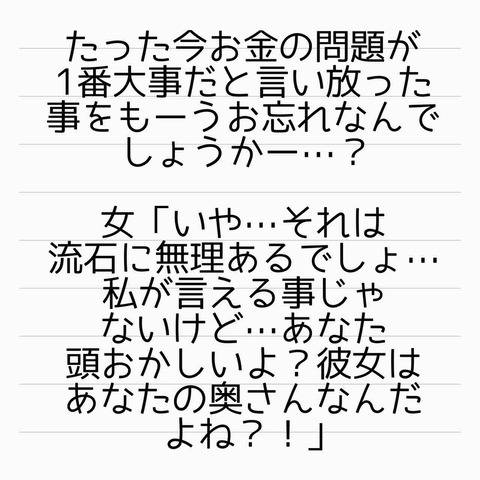 たった今お金の問題が
1番大事だと言い放った
事をもーうお忘れなんで
しょうかー…？
女「いや…それは
流石に無理あるでしょ…
私が言える事じゃ
ないけど…あなた
頭おかしいよ？彼女は
あなたの奥さんなんだ
よね？！」